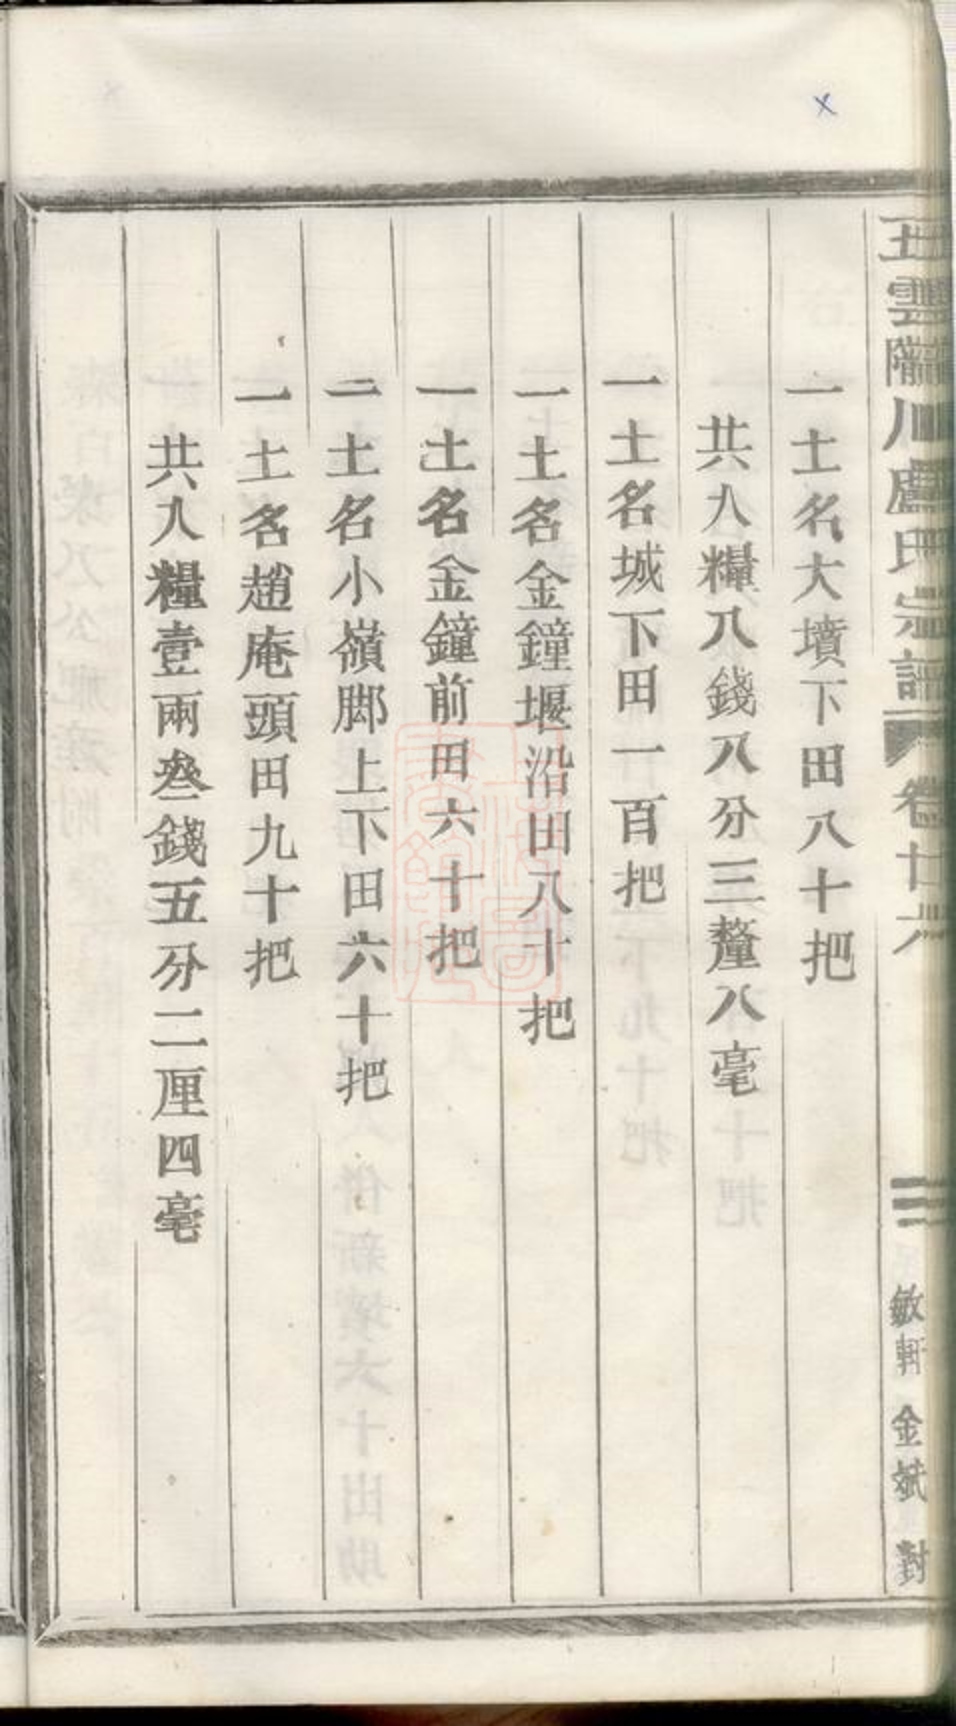 玉雲隴川盧氏宗譜 卷廿六 二 敏軒 金斌 對
一土名大墳下田八十把
共入糧八錢八分三釐八毫
一土名城下田一百把
一土名金鐘堰沿田八十把
一土名金鐘前田六十把
一土名小嶺脚上下田六十把
一土名趙庵頭田九十把
共入糧壹兩叁錢五分二厘四毫